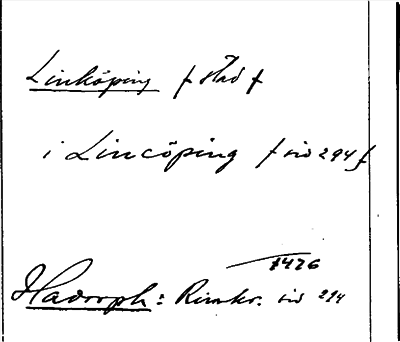 Linköping / stad /
i Lincöping / sid 294 /
1426
Hadorph: Rimkr. sid 294